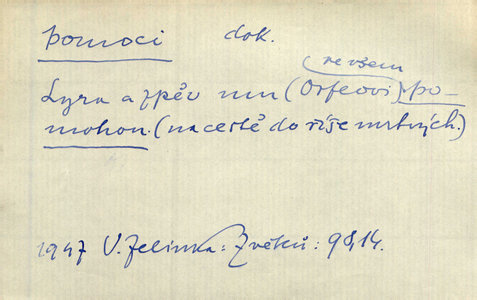 pomoci dok.
ve všem
Lyra a zpěv mu (Orfeovi) po-
mohou. (na cestě do říše mrtvých.)
1947 V. Zelinka: Z věků: 98,14.